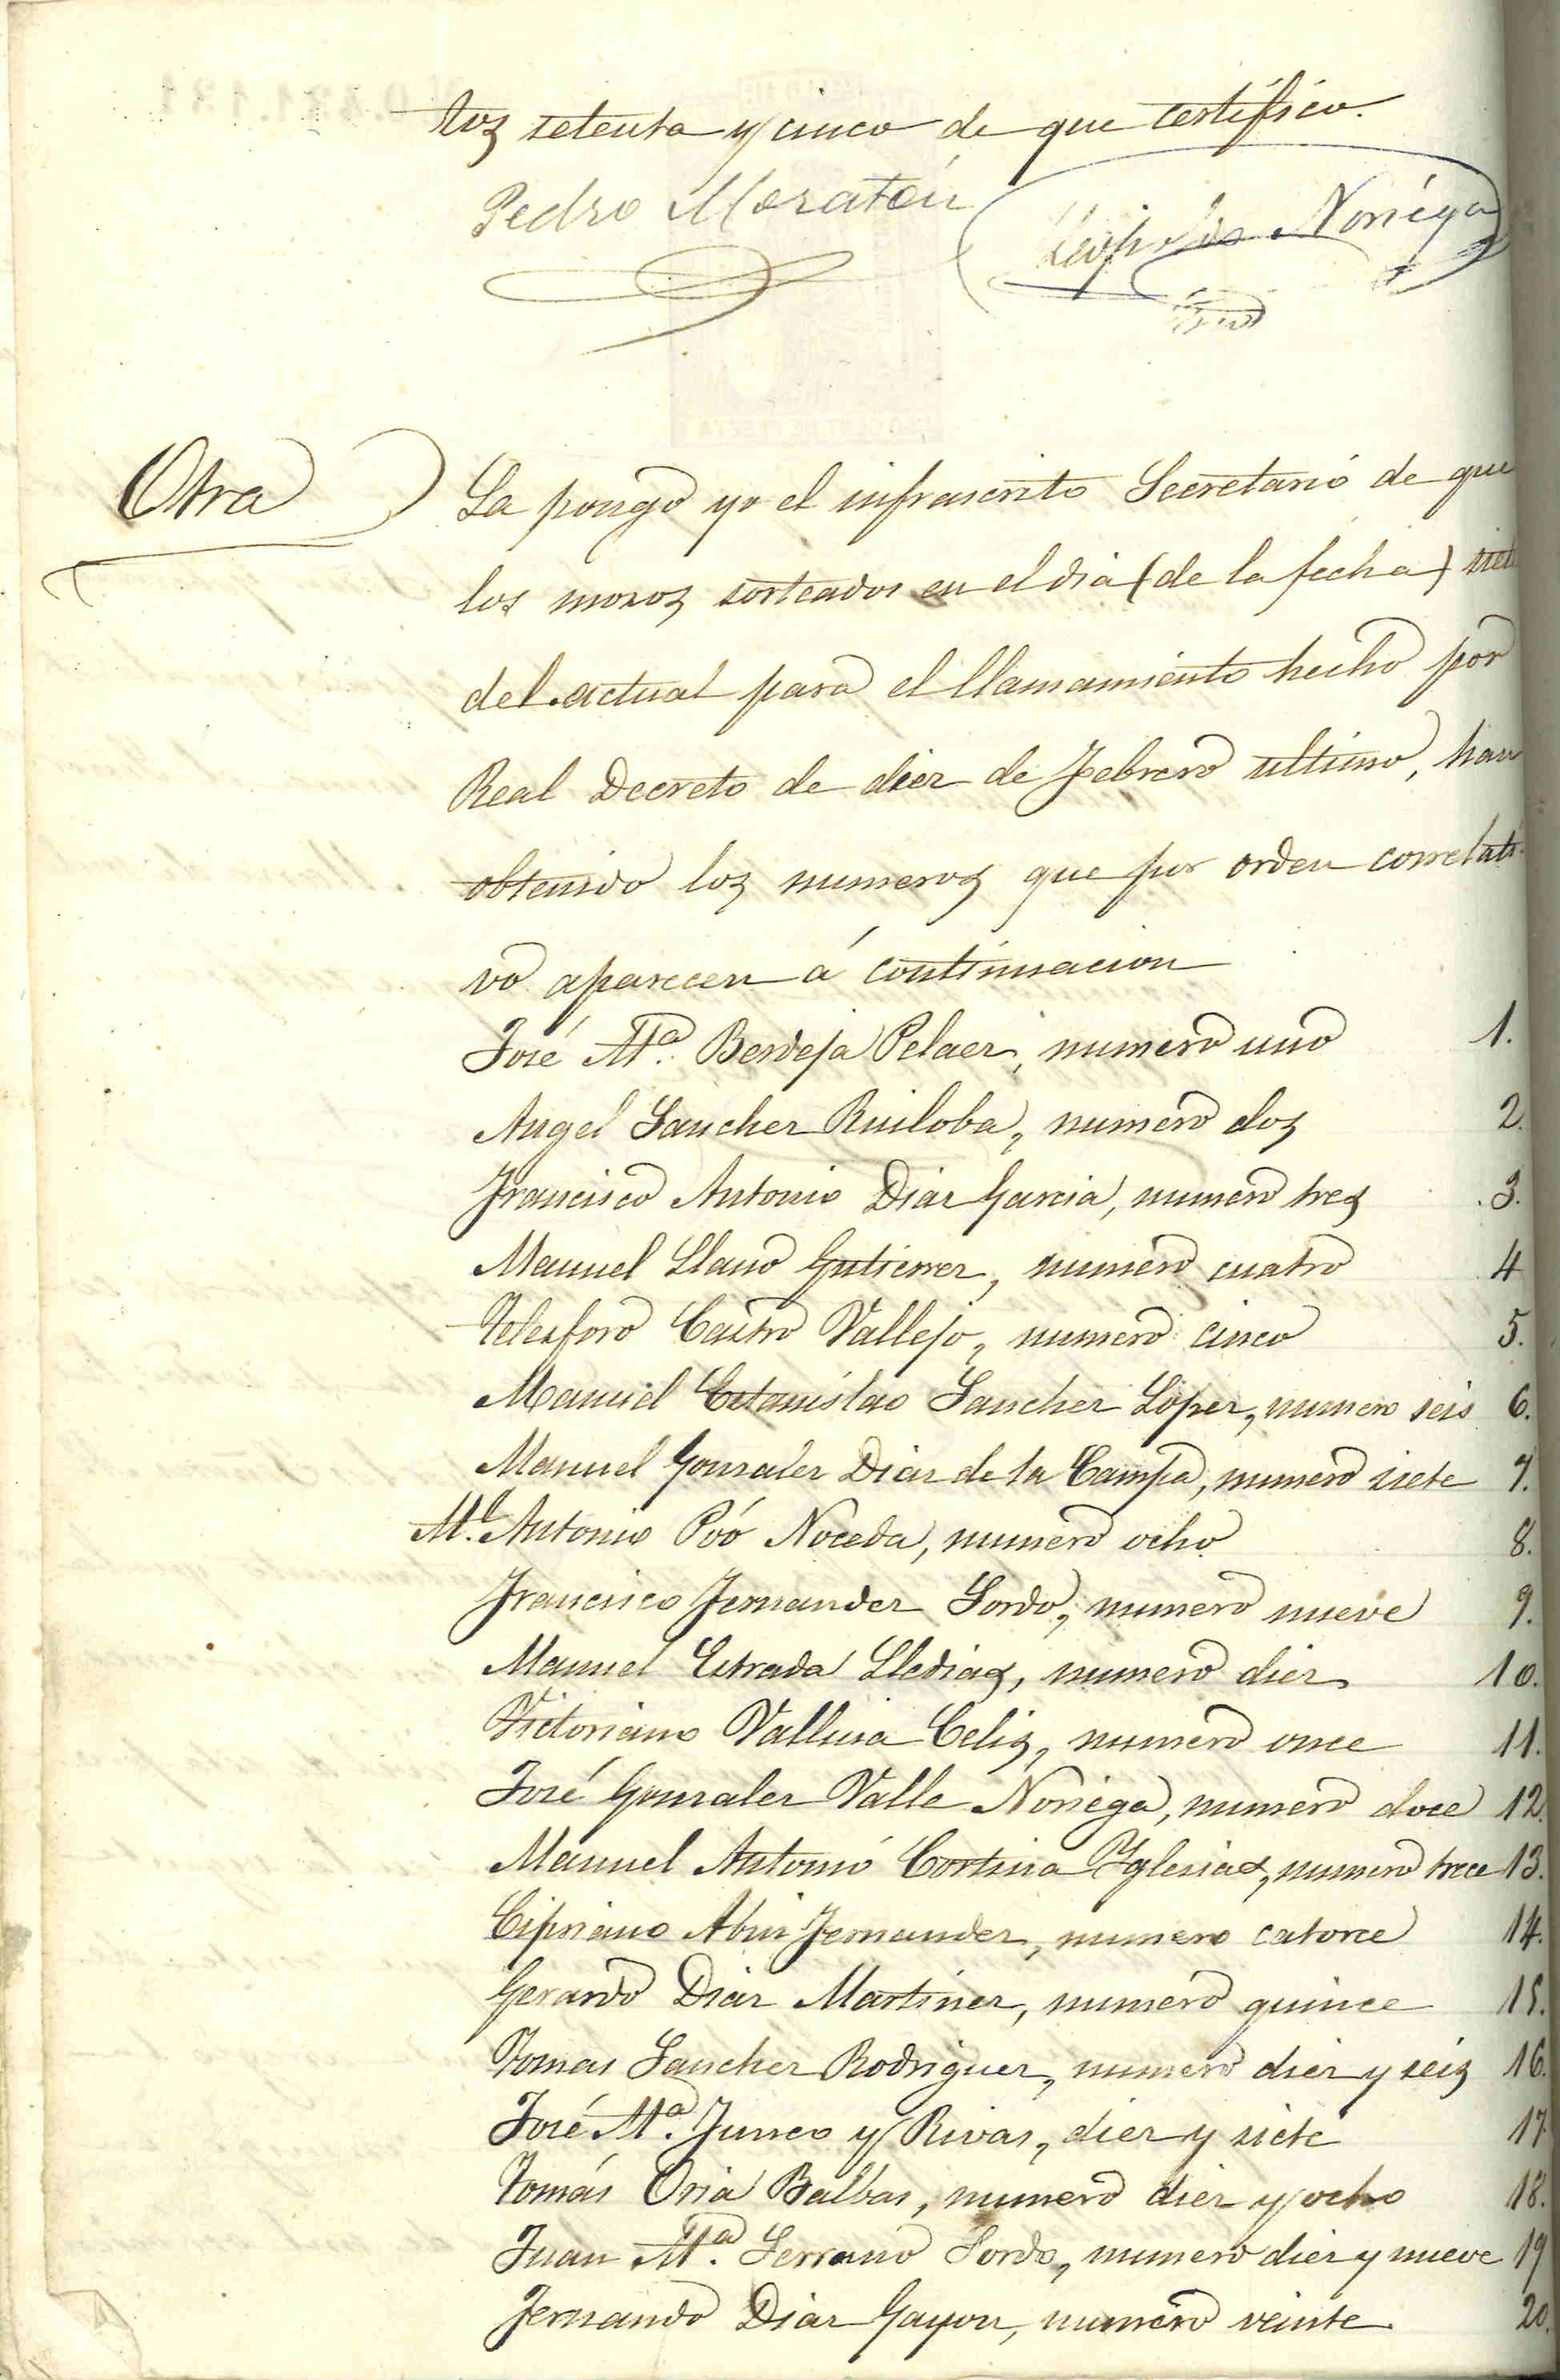 tos setenta y cinco de que certifico.
Pedro Moratón Leopoldo Noriega
Otra
La pongo yo el infrascrito Secretario de que
los mozos sorteados en el dia (de la fecha) siete
del actual para el llamamiento hecho por
Real Decreto de diez de Febrero ultimo, han
obtenido los numeros que por orden correlati
vo aparecen á continuacion
José Mª. Berdeja Pelaez, numero uno 1.
Angel Sanchez Ruiloba, numero dos 2.
Francisco Antonio Diaz Garcia, numero tres 3.
Manuel Llano Gutierrez, numero cuatro 4
Telesforo Castro Vallejo, numero cinco 5.
Manuel Estanislao Sanchez Lopez, numero seis 6.
Manuel Gonzalez Diaz de la Campa, numero siete 7.
Ml. Antonio Póo Noceda, numero ocho 8.
Francisco Fernandez Sordo, numero nueve 9.
Manuel Estrada Lledias, numero diez 10.
Victoriano Celis, numero once 11.
José Gonzalez Valle Noriega, numero doce 12.
Manuel Antonio Cortina Yglesias, numero trece 13.
Cipriano Fernandez, numero catorce 14.
Gerardo Diaz Martinez, numero quince 15.
Tomas Sanchez Rodriguez, numero diez y seis 16.
José Mª. Junco y Rivas, diez y siete 17
Tomás Oria Balbas, numero diez y ocho 18.
Juan Mª. Serrano Sordo, numero diez y nueve 19
Fernando Diaz Gayon, numero veinte 20.